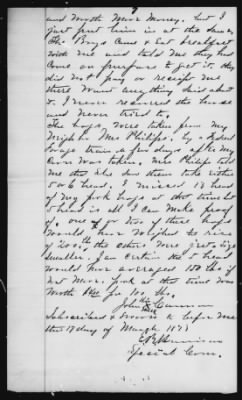 and worth more money. but I
just put him in at the same,
The Boys Came & Eat breakfast
with me and told me they had
Come on purpose to get it, they
did not pay or receipt me
there want anything said about
it. I never recovered the horse
and never tried to.
The hogs were taken from my
neighbor Mrs Philips, by a
wago train a few days after my
Corn was taken. Mrs Philips told
me that she saw them take either
5 or 6 head. I missed 18 head
of my pork hogs at that time but
5 head is all I can make proof
of. one or two of these hogs
would have weighed to rise
of 200 lbs the others were
smaller. I am certin the 5 head
would have averaged 150 lbs if
not more. pork at that time was
worth per 100 lbs.
John his Cannon
mark
Subscribed & Sworn to before me
this 17 day of March 1873
Special Com.